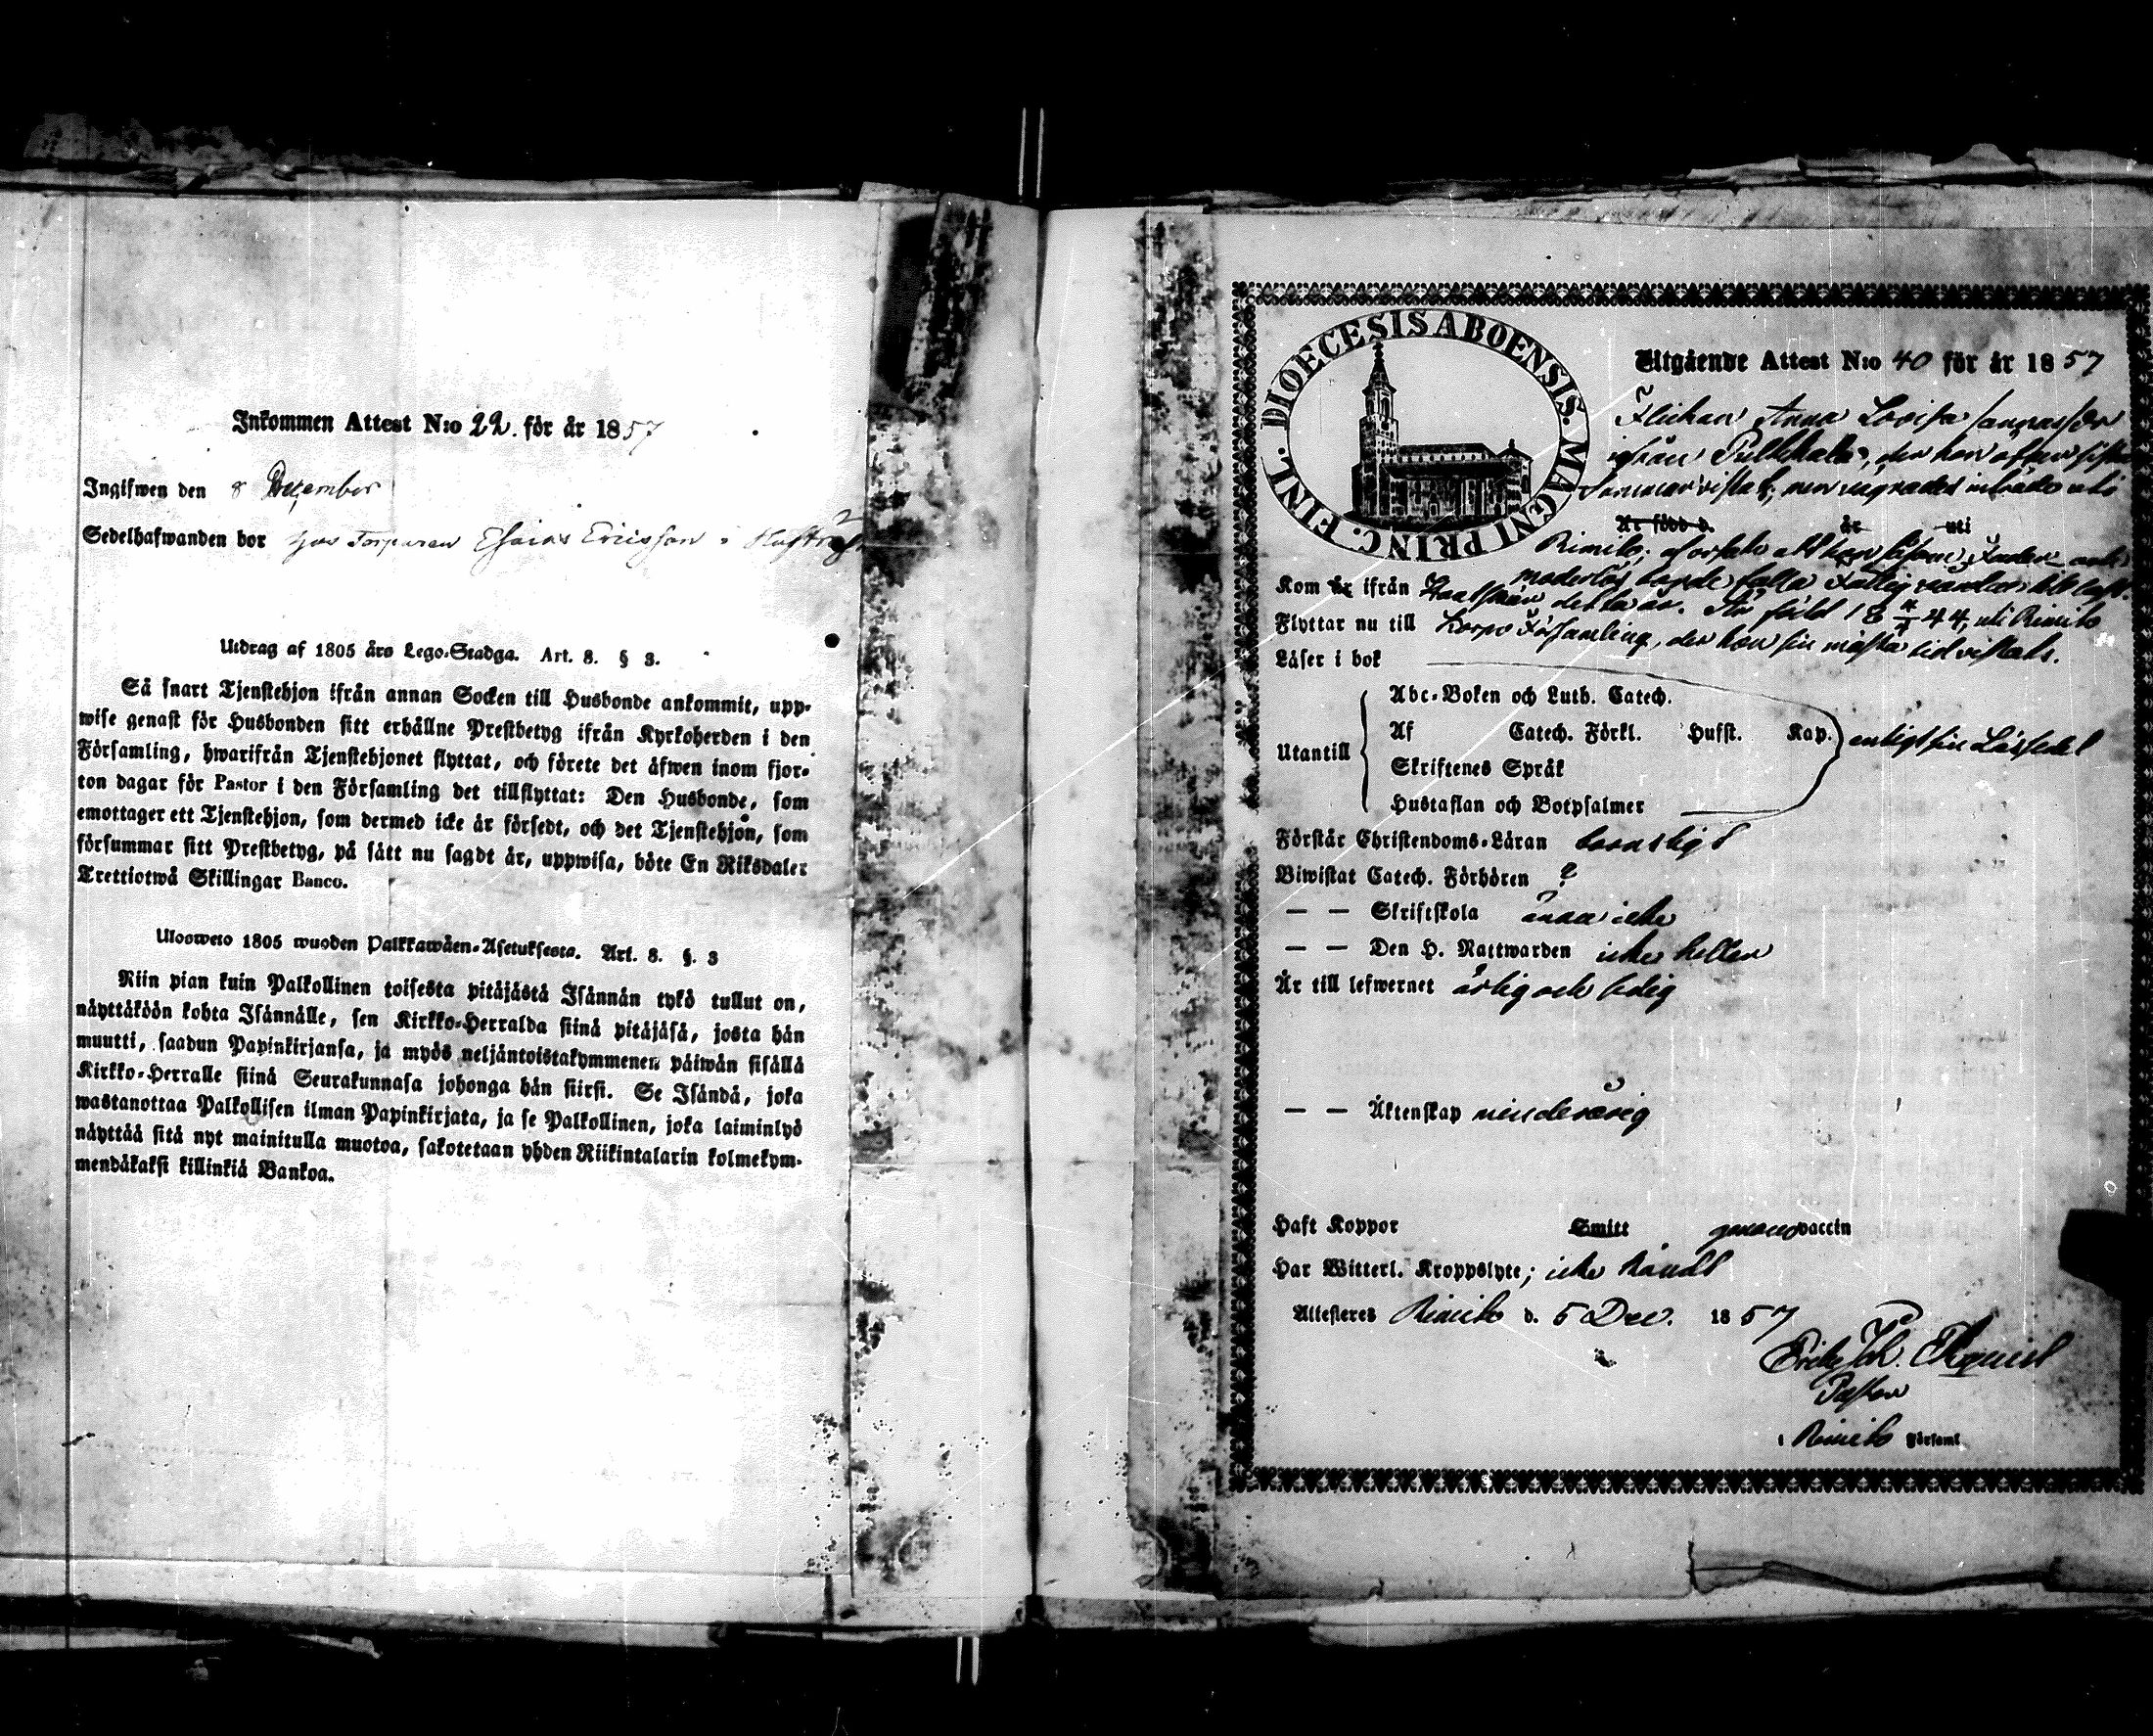 Inkommen Attest N:o 22. för år 1857
Ingifwen den 8 December
Sedelhafwanden bor hos Torparen Esaias Ericsson i
Utdrag af 1805 års Lego-Stadga. Art. 8. § 3.
Så snart Tjenstehjon ifrån annan Socken till Husbonde ankommit, upp-
wise genast för Husbonden sitt erhållne Prestbetyg ifrån Kyrkoherden i den
Församling, hwarifrån Tjenstehjonet flyttat, och förete det äfwen inom fjor-
ton dagar för Pastor i den Församling det tillflyttat: Den Husbonde, som
emottager ett Tjenstehjon, som dermed icke är försedt, och det Tjenstehjon, som
försummar sitt Prestbetyg, på sätt nu sagdt är, uppwisa, böte En Riksdaler
Trettiotwå Skillingar Banco.
Ulosweto 1805 wuoden Palkkawäen-Asetuksesta. Art. 8. §. 3
Niin pian kuin Palkollinen toisesta pitäjästä Isännän tykö tullut on,
näyttäköön kohta Isännälle, sen Kirkko-Herralda siinä pitäjäsä, josta hän
muutti, saadun Papinkirjansa, ja myös neljäntoistakymmenen päiwän sisällä
Kirkko-Herralle siinä Seurakunnasa johonga hän siirsi. Se Isändä, joka
wastanottaa Palkollisen ilman Papinkirjata, ja se Palkollinen, joka laiminlyö
näyttää sitä nyt mainitulla muotoa, sakotetaan yhden Riikintalarin kolmekym-
mendäkaksi killinkiä Bankoa.
DIOECESIS ABOENSIS. MAGNI PRINC. FINL.
Utgående Attest N:o 40 för år 1857
Flickan Anna Lovisa
ifrån der hon sistl.
Sommar vistats,
Är född d. år uti
Rimito, af orsak att hon såsom Fader och
Kom år ifrån moderlös borde falla Fattigvården till last.
detta år. Är född 18 44, uti Rimito
Flyttar nu till Korpo Församling, der hon sin mästa tid vistats.
Läser i bok
Utantill
Abc-Boken och Luth. Catech.
Af Catech. Förkl. Hufst. Kap. enligt sin Läsesedel
Skriftenes Språk
Hustaflan och Botpsalmer
Förstår Christendoms-Läran
Biwistat Catech. Förhören ?
— — Skriftskola ännu icke
— — Den H. Nattwarden icke heller
Är till lefwernet ärlig och ledig
— — Äktenskap minderårig
Haft Koppor Smitt genom vaccin
Har Witterl. Kroppslyte; icke kändt
Attesteres Rimito d. 5 Dec. 1857
Pastor
i Rimito Församl